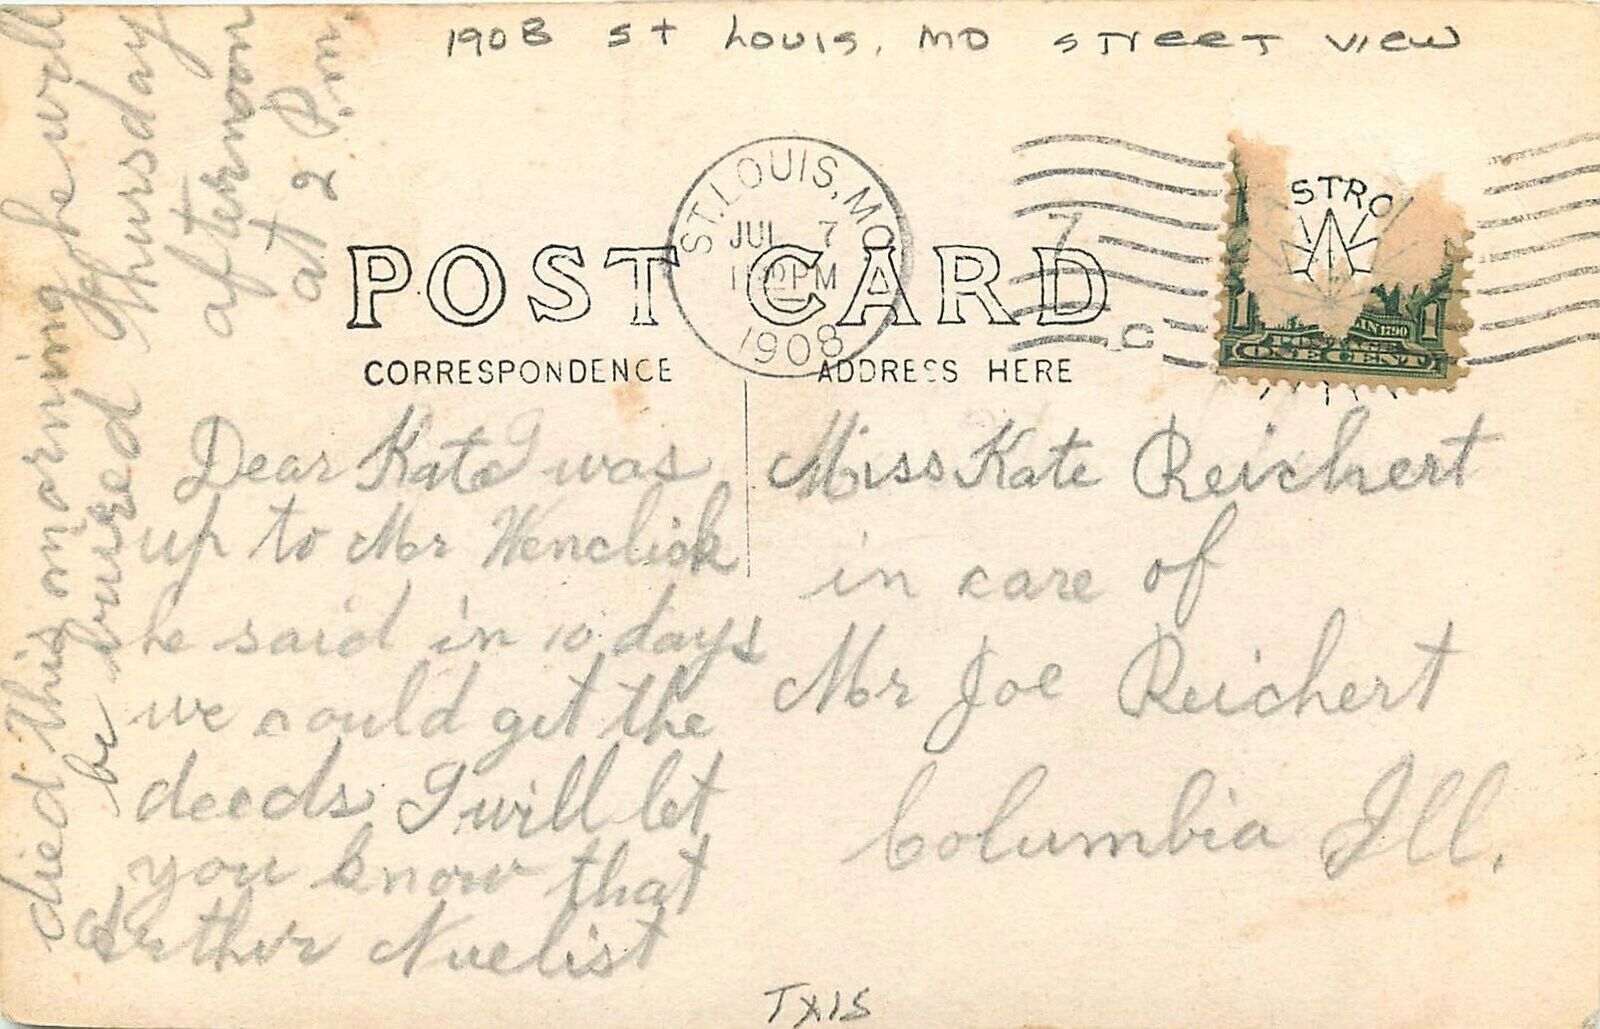 1908 St Louis, MO Street View
ST. LOUIS, MO
JUL 7
PM
1908
7
C
STRO
IN 1790
1 POSTAGE 1
ONE CENT
POST CARD
CORRESPONDENCE
ADDRESS HERE
Dear Kate I was
up to Mr Wenclick
he said in 10 days
we could get the
deeds I will let
you know that
Arthur Nuelist
died this morning he will
be buried thursday
afternoon
at 2 P.m.
Miss Kate Reichert
in care of
Mr Joe Reichert
Columbia Ill.
TX15